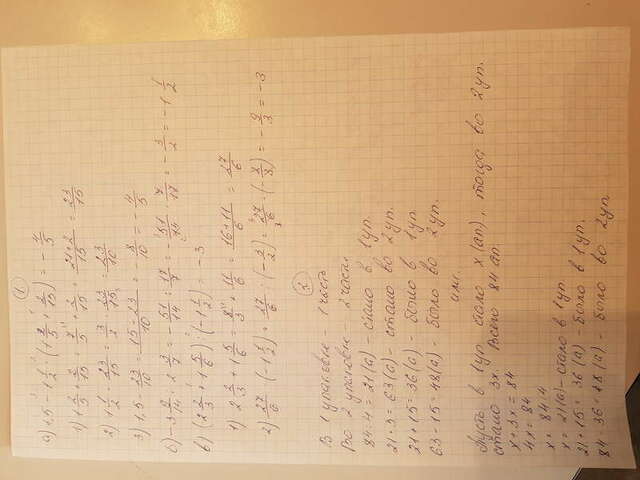 ①
a) 1,5 - 1 1/2 · (1 2/5 + 2/15) = - 4/5
1) 1 2/5 + 2/15 = 7/5 + 2/15 = 21+2/15 = 23/15
2) 1 1/2 · 23/15 = 3/2 · 23/15 = 23/10
3) 1,5 - 23/10 = 15-23/10 = - 8/10 = - 4/5
= - 3/2 = - 1 1/2
б) (2 2/3 + 1 5/6) : (-1 1/2) = -3
1) 2 2/3 + 1 5/6 = 8/3 + 11/6 = 16+11/6 = 27/6
2) 27/6 : (-1 1/2) = 27/6 : (- 3/2) = = - 9/3 = -3
②
В 1 упаковке - 1 часть
Во 2 упаковке -
84:4 = 21(а) - стало в 1 уп.
21·3 = 63(а) - стало во 2 уп.
21+15 = 36(а) - было в 1 уп
63-15 = 48(а) - было во 2 уп.
или.
Пусть в 1 уп стало x (ап), тогда во 2 уп.
стало 3x. Всего 84 ап
x+3x = 84
4x = 84
x = 84:4
x = 21(а) - стало в 1 уп
21+15 = 36 (а) - было в 1 уп.
84-36 = 48 (а). - было во 2 уп